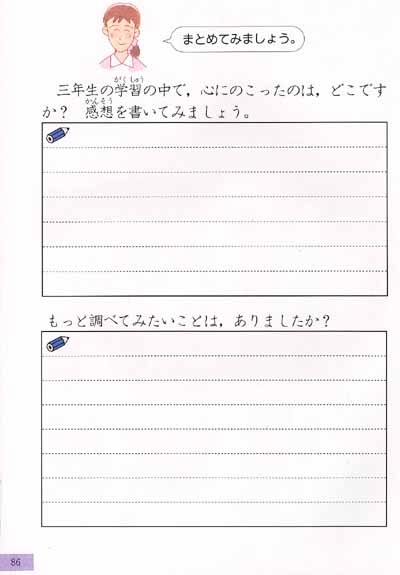 まとめてみましょう。
がくしゅう
三年生の学習の中で，心にのこったのは，どこです
かんそう
か？　感想を書いてみましょう。
もっと調べてみたいことは，ありましたか？
86